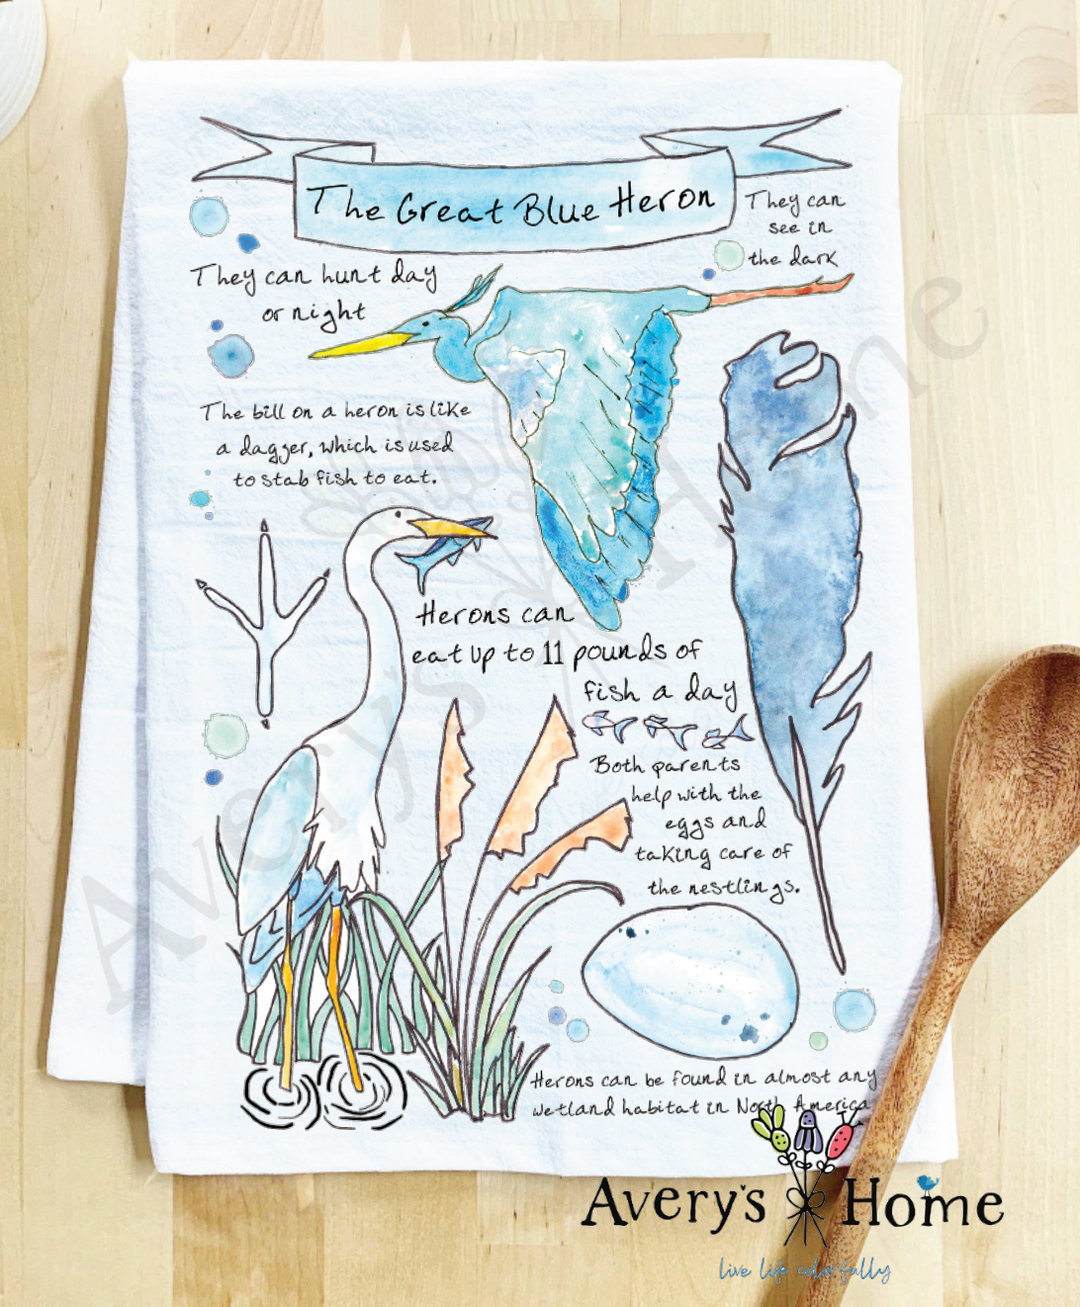 The Great Blue Heron
They can
see in
the dark
They can hunt day
or night
The bill on a heron is like
a dagger, which is used
to stab fish to eat.
Herons can
eat up to 11 pounds of
fish a day
Both parents
help with the
eggs and
taking care of
the nestlings.
Herons can be found in almost any
wetland habitat in North America
Avery's Home
live life colorfully
Avery's Home